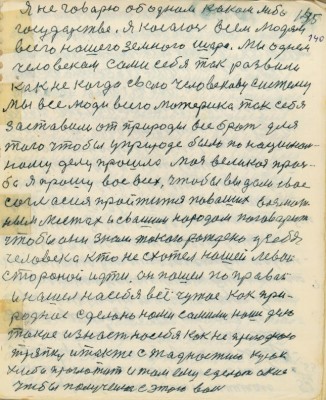 Я не говорю об одном каком либо
государстве. Я косаюсь всем людям
195
всего нашего земного шара. Мы одним
140
человеком сами себя так развили
как не когда свого человекову систему
Мы все люди всего материка так себя
заставили от природы все брать для
того чтобы у природе было по национом-
ному делу прошло Моя великая прось-
ба Я прошу вас всех, чтобы вы дали свое
согласия пройтется по ваших возмож-
ным местах и с вашим народом поговорить
чтобы они знали такого рождено у себя
человека кто не схотел нашей левой
стороной идти, он пошел по правой
и нашел на себя всё чужое как при-
родное сделано нами самими наши дни
такое износит на себя как не пригодную
тряпку и также с жадностию кусок
хлеба проглотит и там ему сделал
чтобы получения с этого вам